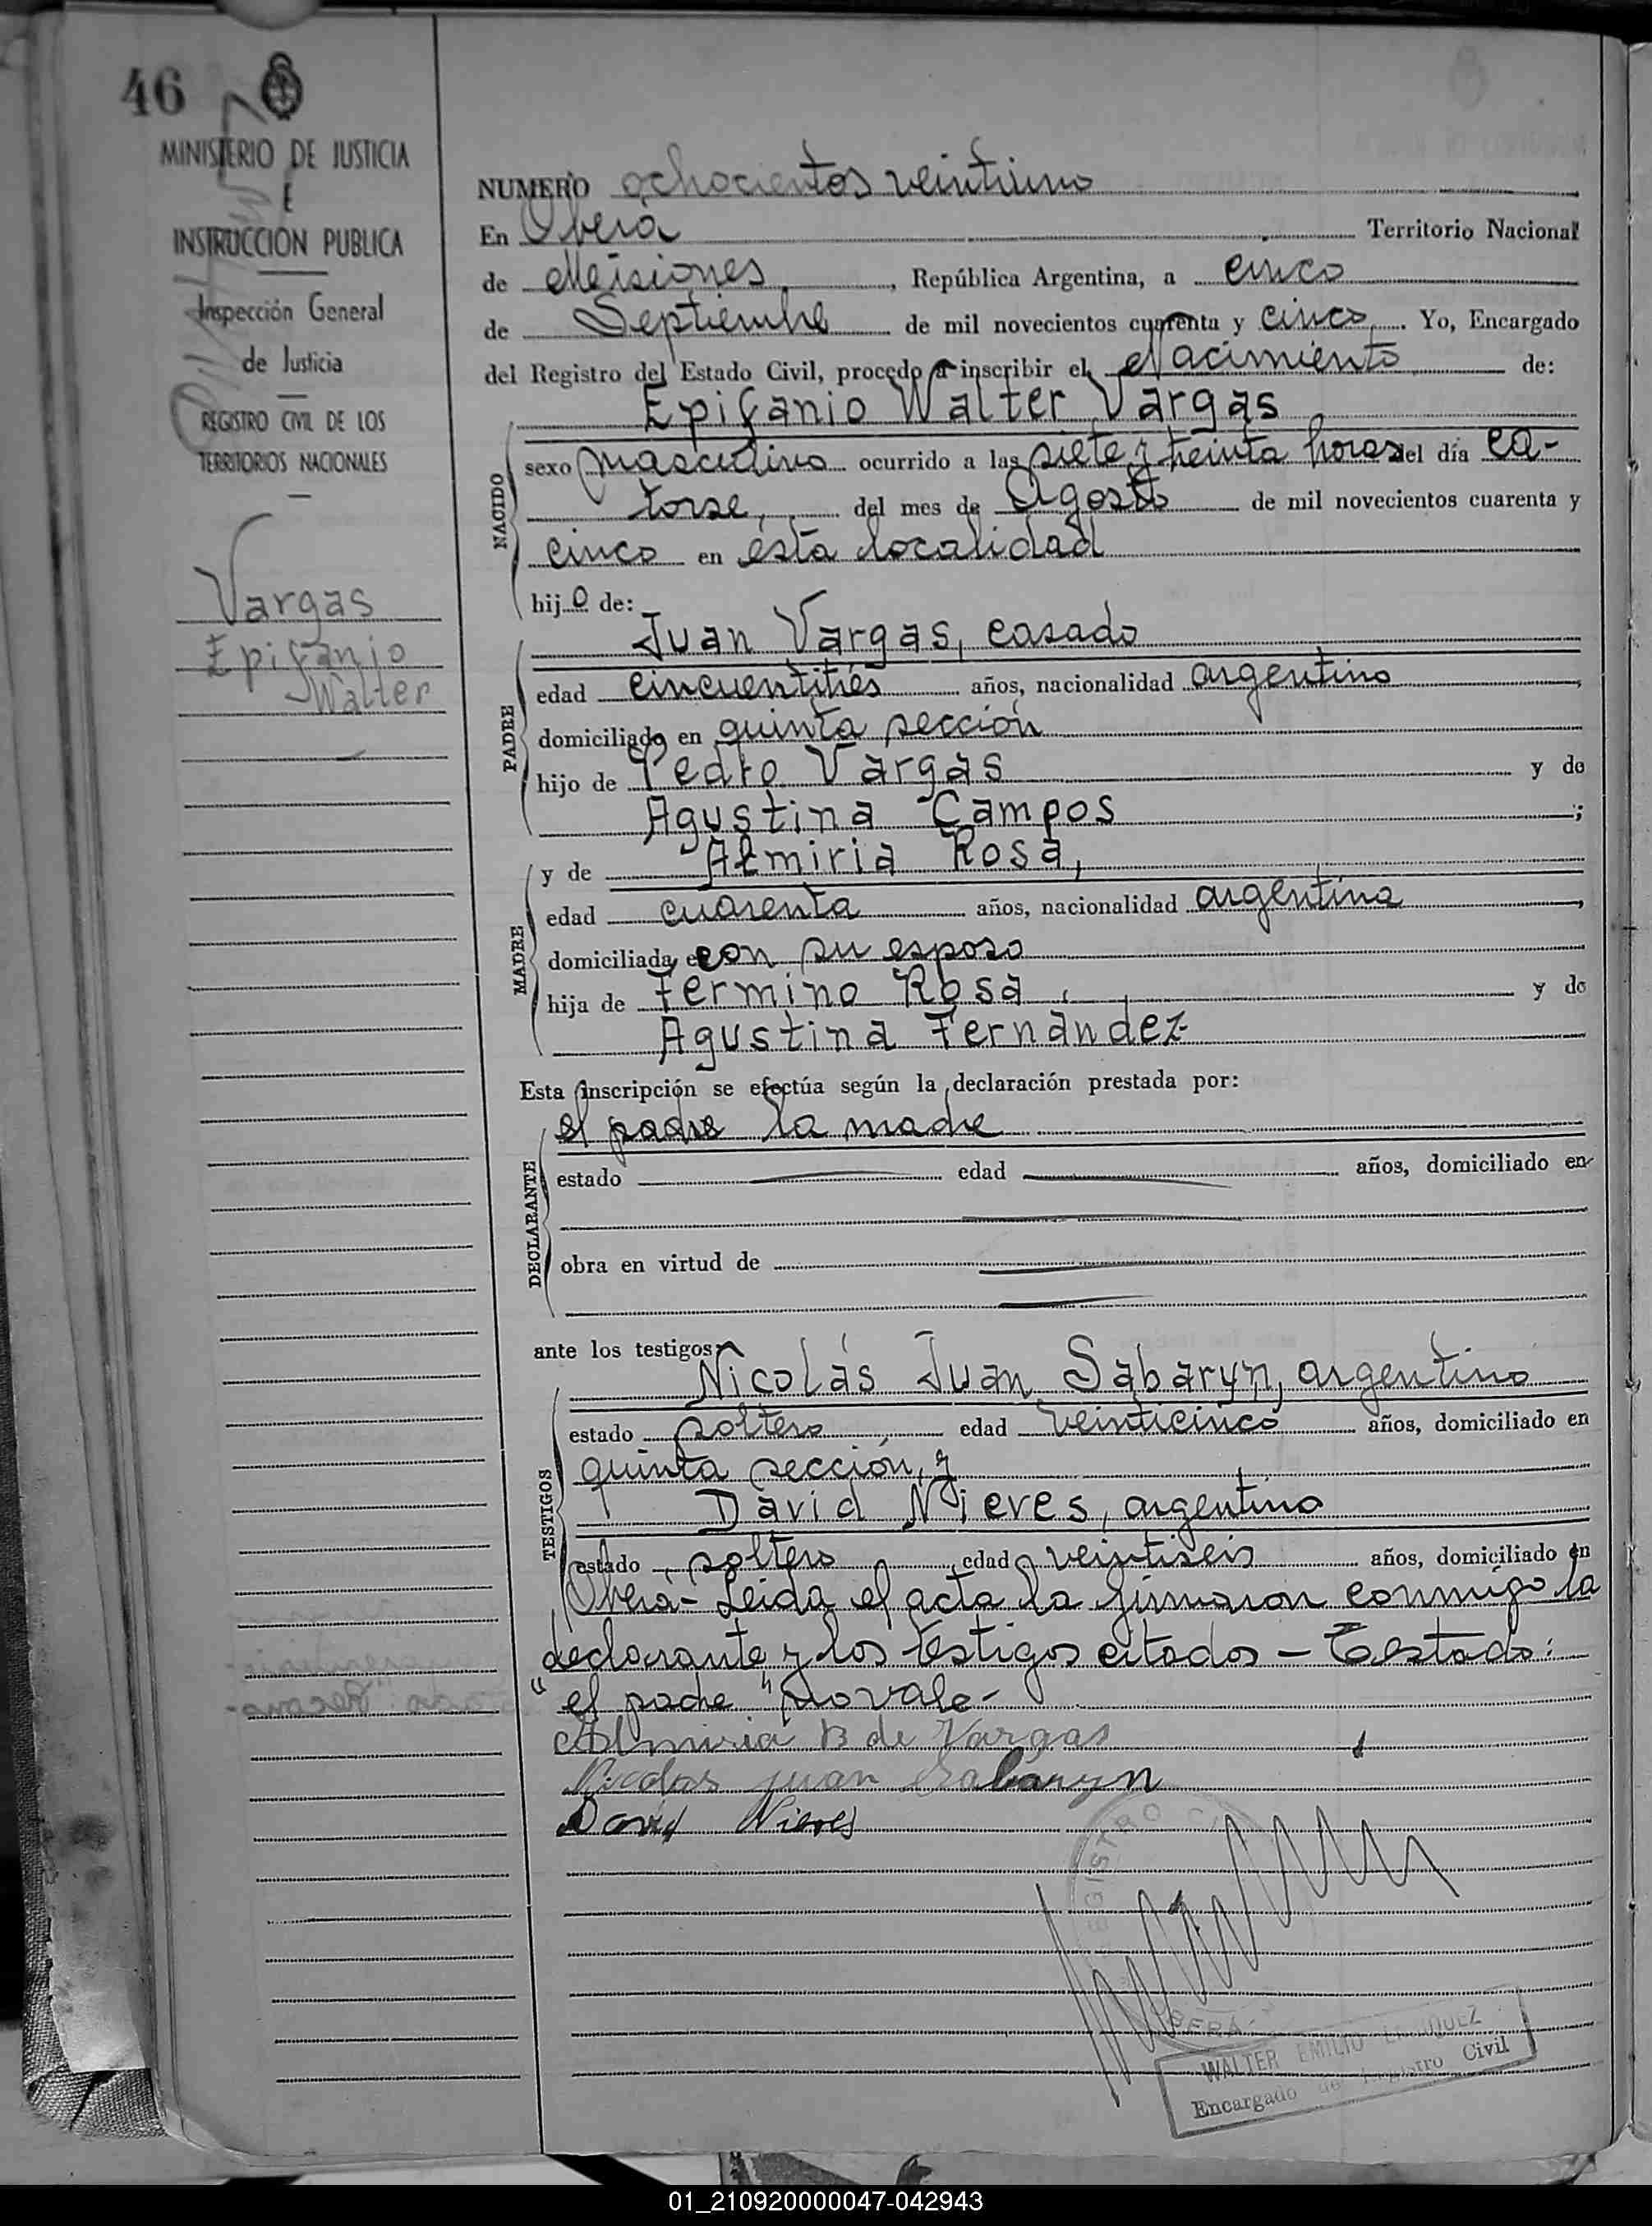 46
MINISTERIO DE JUSTICIA
E
INSTRUCCIÓN PUBLICA
Inspección General
de Justicia
REGISTRO CIVIL DE LOS
TERRITORIOS NACIONALES
Vargas
Epifanio
Walter
NUMERO ochocientos veintiuno
En Oberá Territorio Nacional
de Misiones, República Argentina, a cinco
de Septiembre de mil novecientos cuarenta y cinco. Yo, Encargado
del Registro del Estado Civil, procedo a inscribir el Nacimiento de:
Epifanio Walter Vargas
NACIDO
sexo masculino ocurrido a las siete y treinta horas del día ca-
torse, del mes de Agosto de mil novecientos cuarenta y
cinco en ésta localidad
hijo de:
Juan Vargas, casado
PADRE
edad cincuentitrés años, nacionalidad argentino,
domiciliado en quinta sección
hijo de Pedro Vargas y de
Agustina Campos;
y de Almiria Rosa,
MADRE
edad cuarenta años, nacionalidad argentina,
domiciliada con su esposo
hija de Fermino Rosa, y de
Agustina Fernandez
Esta inscripción se efectúa según la declaración prestada por:
el padre la madre
DECLARANTE
estado edad años, domiciliado en
obra en virtud de
ante los testigos
Nicolás Juan Sabaryn, argentino
TESTIGOS
estado soltero edad veinticinco años, domiciliado en
quinta sección, y
David Nieves, argentino
estado soltero edad veintiseis años, domiciliado en
Oberá- Leida el acta la firmaron conmigo la
declarante y los testigos citados - Testado:
"el padre" no vale-
Almiria B de Vargas
Nicolas Juan Sabaryn
David Nieves
REGISTRO CI
BERA
WALTER EMILIO
Encargado de Registro Civil
01_210920000047-042943